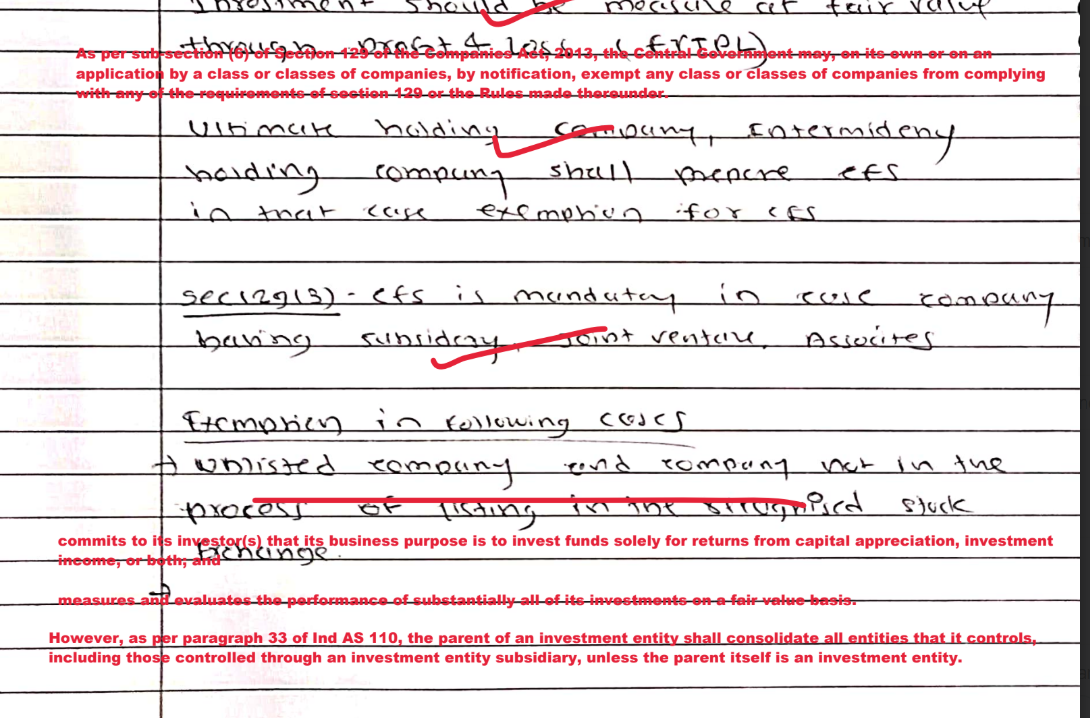 Investment should be measure at fair value
through profit & loss (FVTPL)
As per sub-section (6) of Section 129 of the Companies Act, 2013, the Central Government may, on its own or on an
application by a class or classes of companies, by notification, exempt any class or classes of companies from complying
with any of the requirements of section 129 or the Rules made thereunder.
Ultimate holding company, Intermideny
holding company shall prepare CFS
in that case exemption for CFS
Sec 129(3) - CFS is mandatory in case company
having subsidary, Joint venture, Assocites
Exemption in following cases
→ Unlisted company and company not in the
process of listing in the recognised stock
commits to its investor(s) that its business purpose is to invest funds solely for returns from capital appreciation, investment
Exchange.
income, or both; and
→
measures and evaluates the performance of substantially all of its investments on a fair value basis.
However, as per paragraph 33 of Ind AS 110, the parent of an investment entity shall consolidate all entities that it controls,
including those controlled through an investment entity subsidiary, unless the parent itself is an investment entity.